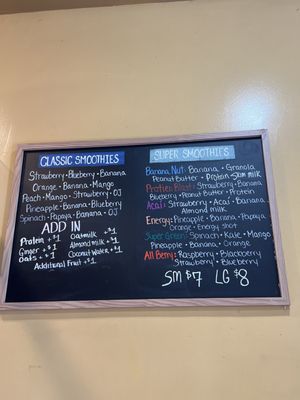 CLASSIC SMOOTHIES
Strawberry · Blueberry · Banana
Orange · Banana · Mango
Peach · Mango · Strawberry · OJ
Pineapple · Banana · Blueberry
Spinach · Papaya · Banana · OJ
ADD IN
Protein + $1
Ginger + $1
Oats + $1
Oatmilk + $1
Almond milk + $1
Coconut Water + $1
Additional Fruit + $1
SUPER SMOOTHIES
Banana Nut: Banana · Granola
Peanut Butter · Protein · Slim milk
Protien Blast: Strawberry · Banana
Blueberry · Peanut Butter · Protein
Acai: Strawberry · Acai · Banana
Almond milk
Energy: Pineapple · Banana · Papaya
Orange · Energy shot
Super Green: Spinach · Kale · Mango
Pineapple · Banana · Orange
All Berry: Raspberry · Blackberry
Strawberry · Blueberry
SM $7 LG $8